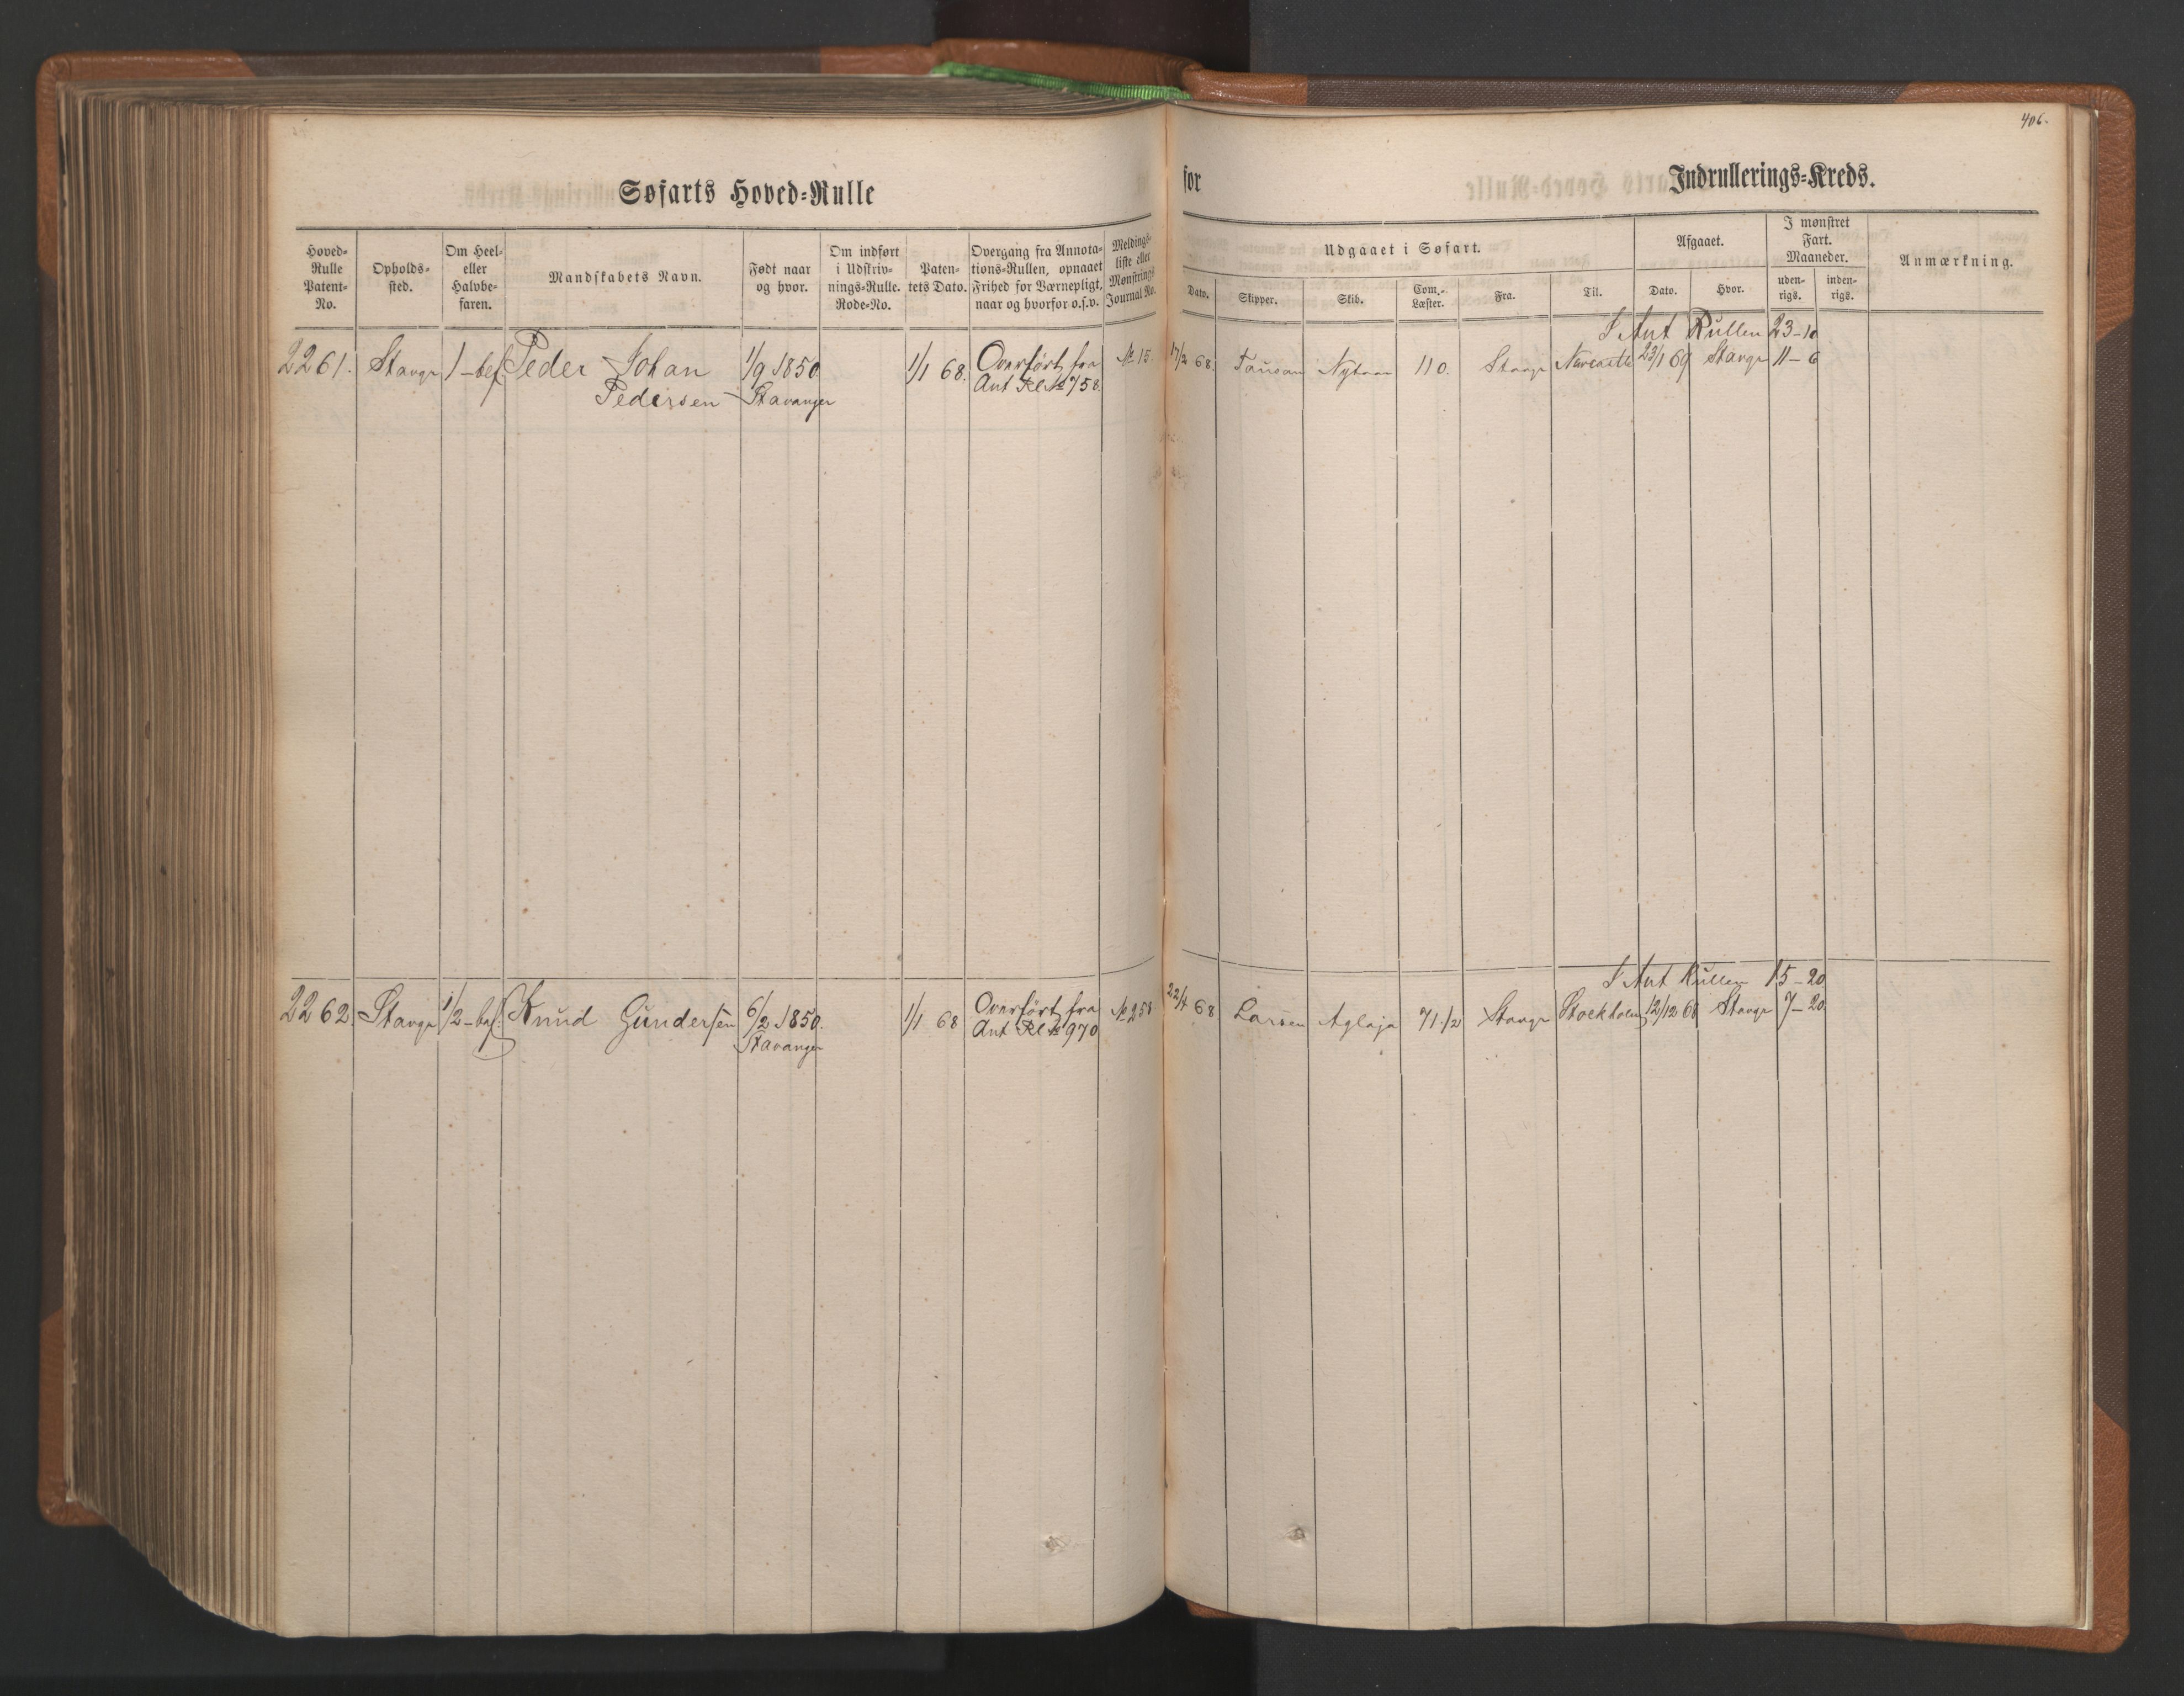 406.
Søfarts Hoved-Rulle
for
Indrullerings-Kreds.
Hoved-Rulle Patent-No.
Opholds-sted.
Om Heel- eller Halvbe-faren.
Mandskabets Navn.
Født naar og hvor.
Om indført i Udskriv-nings-Rulle. Rode-No.
Paten-tets Dato.
Overgang fra Annota-tions-Rullen, opnaaet Frihed for Værnepligt, naar og hvorfor o.s.v.
Meldings-liste eller Mønstrings Journal No.
Udgaaet i Søfart.
Dato.
Skipper.
Skib.
Com.-Læster.
Fra.
Til.
Afgaaet.
Dato.
Hvor.
I mønstret Fart. Maaneder.
uden-rigs.
inden-rigs.
Anmærkning.
I Ant Rullen 23-10
2261. Stavgr 1-bef Peder Johan 1/9 1850 1/1 68. Overført fra № 15. 17/2 68. 110. Stavgr Newcastle 23/1 69 Stavgr 11-6
Pedersen Stavanger Ant Rl № 758.
I Ant Rullen 15-20
2262. Stavgr 1/2-bef. Knud Gundersen 6/2 1850. 1/1 68 Overført fra № 258 22/4 68 Larsen Aglaja 71 1/2 Stavgr Stockholm 12/12 68 Stavgr 7-20
Stavanger Ant Rl № 970